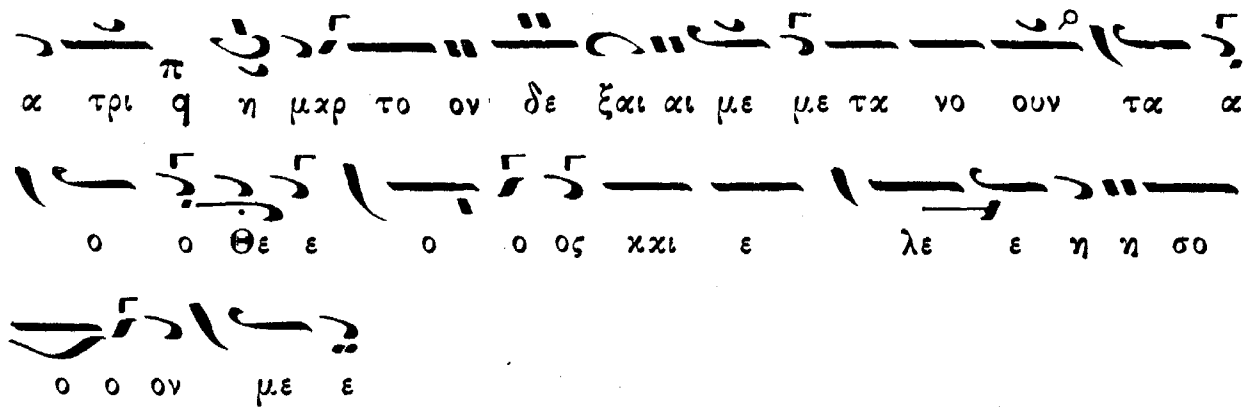 α τρι π q η μαρ το ον δε ξαι αι με με τα νο ουν τα α
ο ο Θε ε ο ο ος και ε λε ε η η σο
ο ο ον με ε